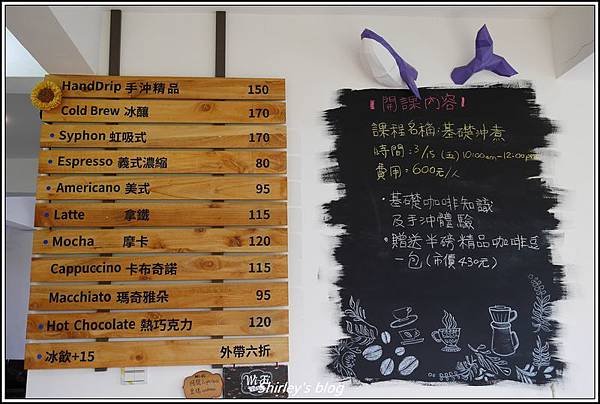 HandDrip 手沖精品 150
Cold Brew 冰釀 170
Syphon 虹吸式 170
Espresso 義式濃縮 80
Americano 美式 95
Latte 拿鐵 115
Mocha 摩卡 120
Cappuccino 卡布奇諾 115
Macchiato 瑪奇雅朵 95
Hot Chocolate 熱巧克力 120
冰飲+15 外帶六折
【開課內容】
課程名稱:基礎沖煮
時間:3/15 (五) 10:00am-12:00pm
費用:600元/人
・基礎咖啡知識
及手沖體驗
・贈送半磅精品咖啡豆
一包(市價430元)
Shirley's blog